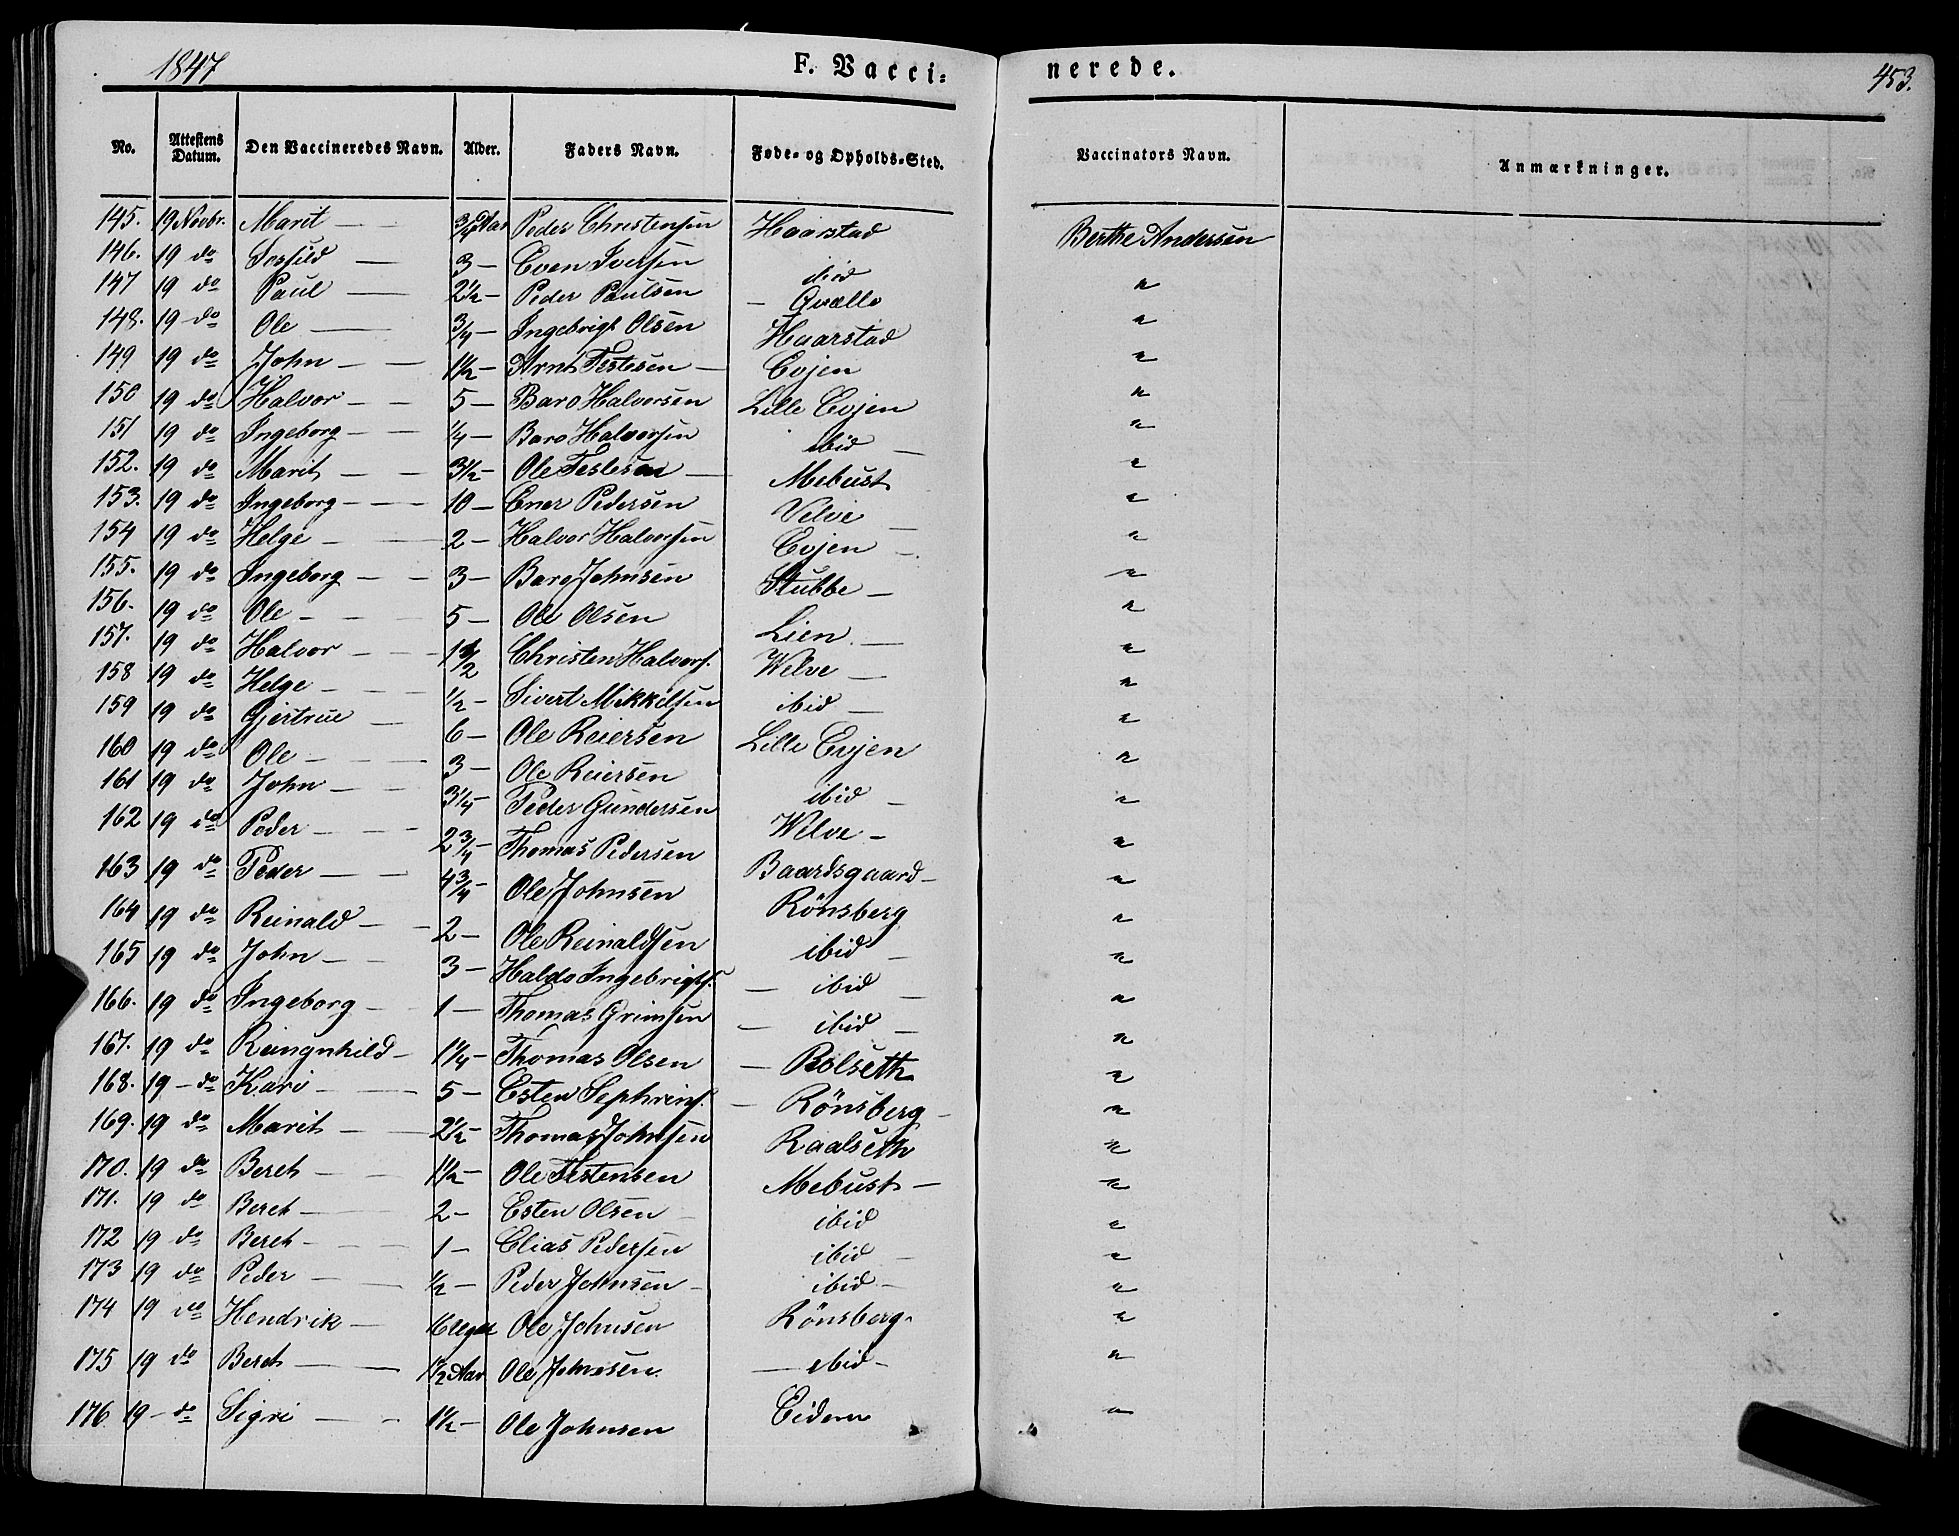 1847 F. Vacci= nerede. 453.
No. Attestens Datum. Den Vaccineredes Navn. Alder. Faders Navn. Føde- og Opholds-Sted. Vaccinators Navn. Anmærkninger.
145. 19 Novbr. Marit — 3/4 Aar Peder Christensen Haarstad Berthe Andersen
146. 19 do — 3 — Even Iversen ibid "
147 19 do Paul — 2 1/2 — Peder Paulsen — Qvælle "
148. 19 do Ole — 3/4 — Ingebrigt Olsen Haarstad "
149 19 do John — 1 1/2 — Arnt Estesen — Evjen "
150 19 do Halvor — 5 — Baro Halvorsen Lille Evjen "
151 19 do Ingeborg — 1/4 — Baro Halvorsen ibid — "
152. 19 do Marit — 3 1/2 — Ole — Mebust "
153. 19 do Ingeborg — 10 — Ener Pedersen Velve — "
154 19 do Helge — 2 — Halvor Halvorsen Evjen — "
155. 19 do Ingeborg — 3 — Baro Johnsen Stubbe — "
156. 19 do Ole — 5 — Ole Olsen Lien — "
157. 19 do Halvor — 1 1/2 Christen Halvors. Welve — "
158 19 do Helge — 1/2 — Sivert Mikkelsen ibid — "
159 19 do Gjertrue — 6 — Ole Reiersen Lille Evjen "
160 19 do Ole — 3 — Ole Reiersen ibid — "
161 19 do John — 3 1/4 — Peder Gundersen Welve — "
162 19 do Peder — 2 3/4 — Thomas Pedersen Baardsgaard — "
163 19 do Peder — 4 3/4 — Ole Johnsen Rönsberg "
164 19 do Reinald — 2 — Ole Reinaldsen ibid — "
165 19 do John — 3 — Haldo Ingebrigts. — ibid — "
166. 19 do Ingeborg — 1 — Thomas Grimsen — ibid — "
167. 19 do Reingnhild — 1 1/4 — Thomas Olsen — Rolseth "
168. 19 — do Kari — 5 — Esten Sephrins. — Rönsberg — "
169. 19 do Marit — 2 1/2 — Thomas Johnsen Raalseth "
170. 19 do Beret — 1 1/2 — Ole Mebust — "
171. 19 do Beret — 2 — Esten Olsen — ibid "
172 19 do Beret — 1 — Elias Pedersen ibid — "
173 19 do Peder — 1/2 — Peder Johnsen — ibid — "
174 19 do Hendrik — 6 Uger Ole Johnsen Rönsberg "
175 19 do Beret — 1 1/2 Aar Ole Johnsen — ibid — "
176 19 — do Sigri — 1 1/2 — Ole Johnsen Eidem "